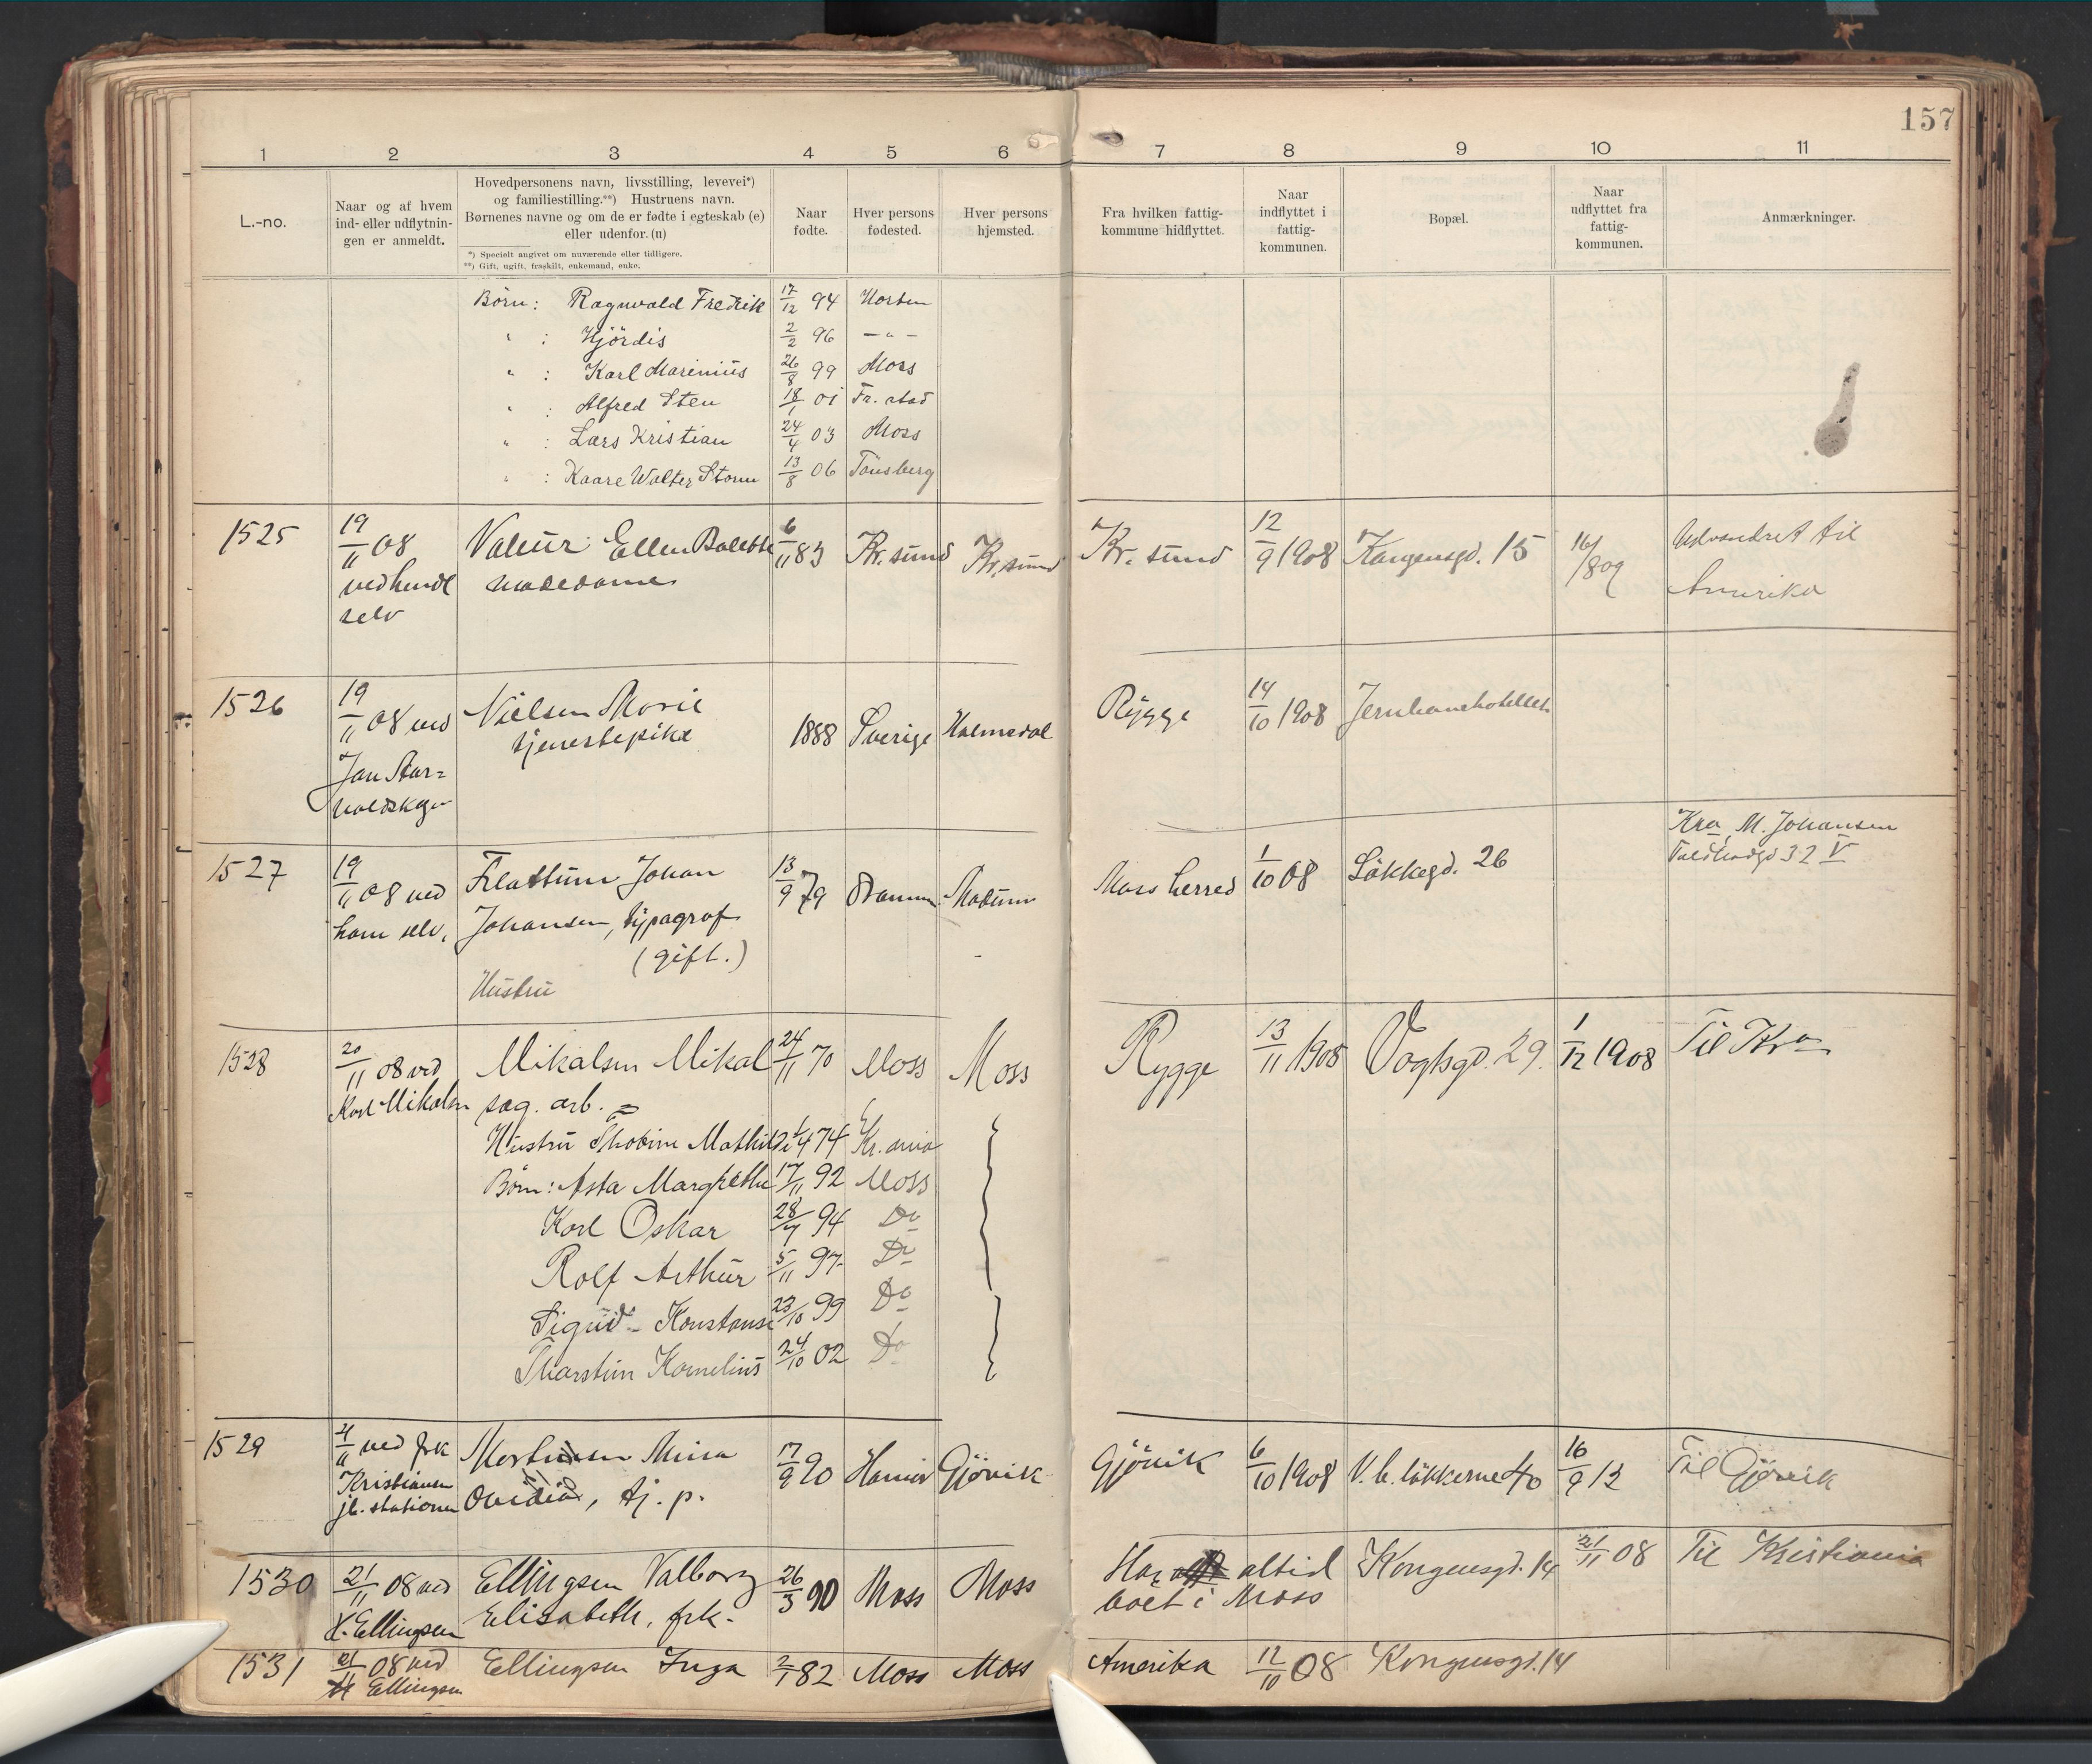 157
1 2 3 4 5 6 7 8 9 10 11
L.-no.
Naar og af hvem
ind- eller udflytnin-
gen er anmeldt.
Hovedpersonens navn, livsstilling, levevei*)
og familiestilling.**) Hustruens navn.
Børnenes navne og om de er fødte i egteskab (e)
eller udenfor. (u)
*) Specielt angivet om nuværende eller tidligere.
**) Gift, ugift, fraskilt, enkemand, enke.
Naar
fødte.
Hver persons
fødested.
Hver persons
hjemsted.
Fra hvilken fattig-
kommune hidflyttet.
Naar
indflyttet i
fattig-
kommunen.
Bopæl.
Naar
udflyttet fra
fattig-
kommunen.
Anmærkninger.
Børn: Ragnvald Fredrik 17/12 94 Horten
" : Hjördis 2/2 96 — " —
" : Karl Marinius 26/8 99 Moss
" : Alfred Sten 18/1 01 Fr. stad
" : Lars Kristian 24/4 03 Moss
" : Kaare Walter Storm 13/8 06 Tönsberg
1525 19/11 08 Valeur Ellen 6/11 83 Kr. sund Kr. sund Kr. sund 12/9 1908 Kongensgd. 15 16/8 09 Udvandret til
ved hende Amerika
selv
1526 19/11 08 ved Nielsen Marie 1888 Sverige Halmsdal Rygge 14/10 1908 Jernbanehotellet
tjenestepike
Jan
Kra M. Johansen
32 V
1527 19/11 08 ved Flattum Johan 13/9 79 Dramm. Modum Moss herred 1/10 08 Løkkegd. 26
ham selv. Johansen, typograf
(gift.)
Hustru
1528 20/11 08 ved Mikalsen Mikal 24/11 70 Moss Moss Rygge 13/11 1908 Vogtsgd. 29. 1/12 1908 Til Kra
Karl Mikalsen sag. arb.
Hustru Thobine Mathilde 1/4 74 Kr. ania
Børn: Asta Margrethe 17/11 92 Moss
Karl Oskar 28/7 94 Do
Rolf Arthur 5/11 97 Do
Sigrid Konstanse 23/10 99 Do
Tharstein Kornelius 24/10 02 Do
1529 21/11 ved frk Mortensen Mina 17/9 90 Hamar Gjövik Gjövik 6/10 1908 V. b. løkkerne 40 16/9 12 Til Gjövik
Kristiansen
jb. stationen Ovidia, tj. p.
1530 21/11 08 ved Ellingsen Valborg 26/3 90 Moss Moss Har altid Kongensgd. 14 21/11 08 Til Kristiania
H. Ellingsen Elisabeth, frk. boet i Moss
1531 21/11 08 ved Ellingsen Inga 2/1 82 Moss Moss Amerika 12/10 08 Kongensgd. 14
H Ellingsen